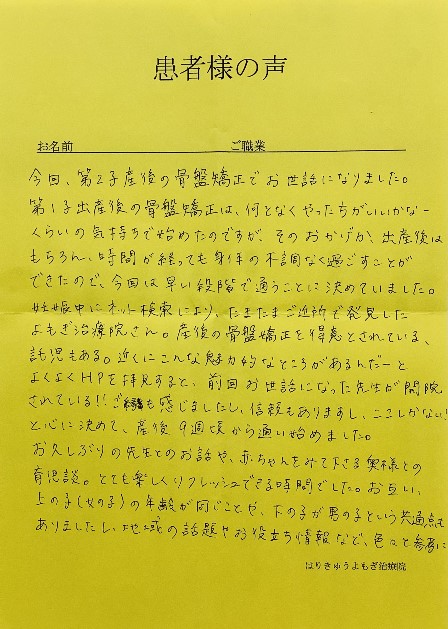 患者様の声
お名前 ご職業
今回、第2子産後の骨盤矯正でお世話になりました。
第1子出産後の骨盤矯正は、何となくやった方がいいかなー
くらいの気持ちで始めたのですが、そのおかげか、出産後は
もちろん、時間が経っても身体の不調なく過ごすことが
できたので、今回は早い段階で通うことに決めていました。
妊娠中にネット検索により、たまたまご近所で発見した
よもぎ治療院さん。産後の骨盤矯正を得意とされている、
託児もある。近くにこんな魅力的なところがあるんだーと
よくよくHPを拝見すると、前回お世話になった先生が開院
されている!!ご縁も感じましたし、信頼もありますし、ここしかない!
と心に決めて、産後9週頃から通い始めました。
お久しぶりの先生とのお話や、赤ちゃんをみて下さる奥様との
育児談。とても楽しくリフレッシュできる時間でした。お互い、
上の子(女の子)の年齢が同じことや、下の子が男の子という共通点も
ありましたし、地域の話題やお役立ち情報など、色々と参考に
はりきゅうよもぎ治療院